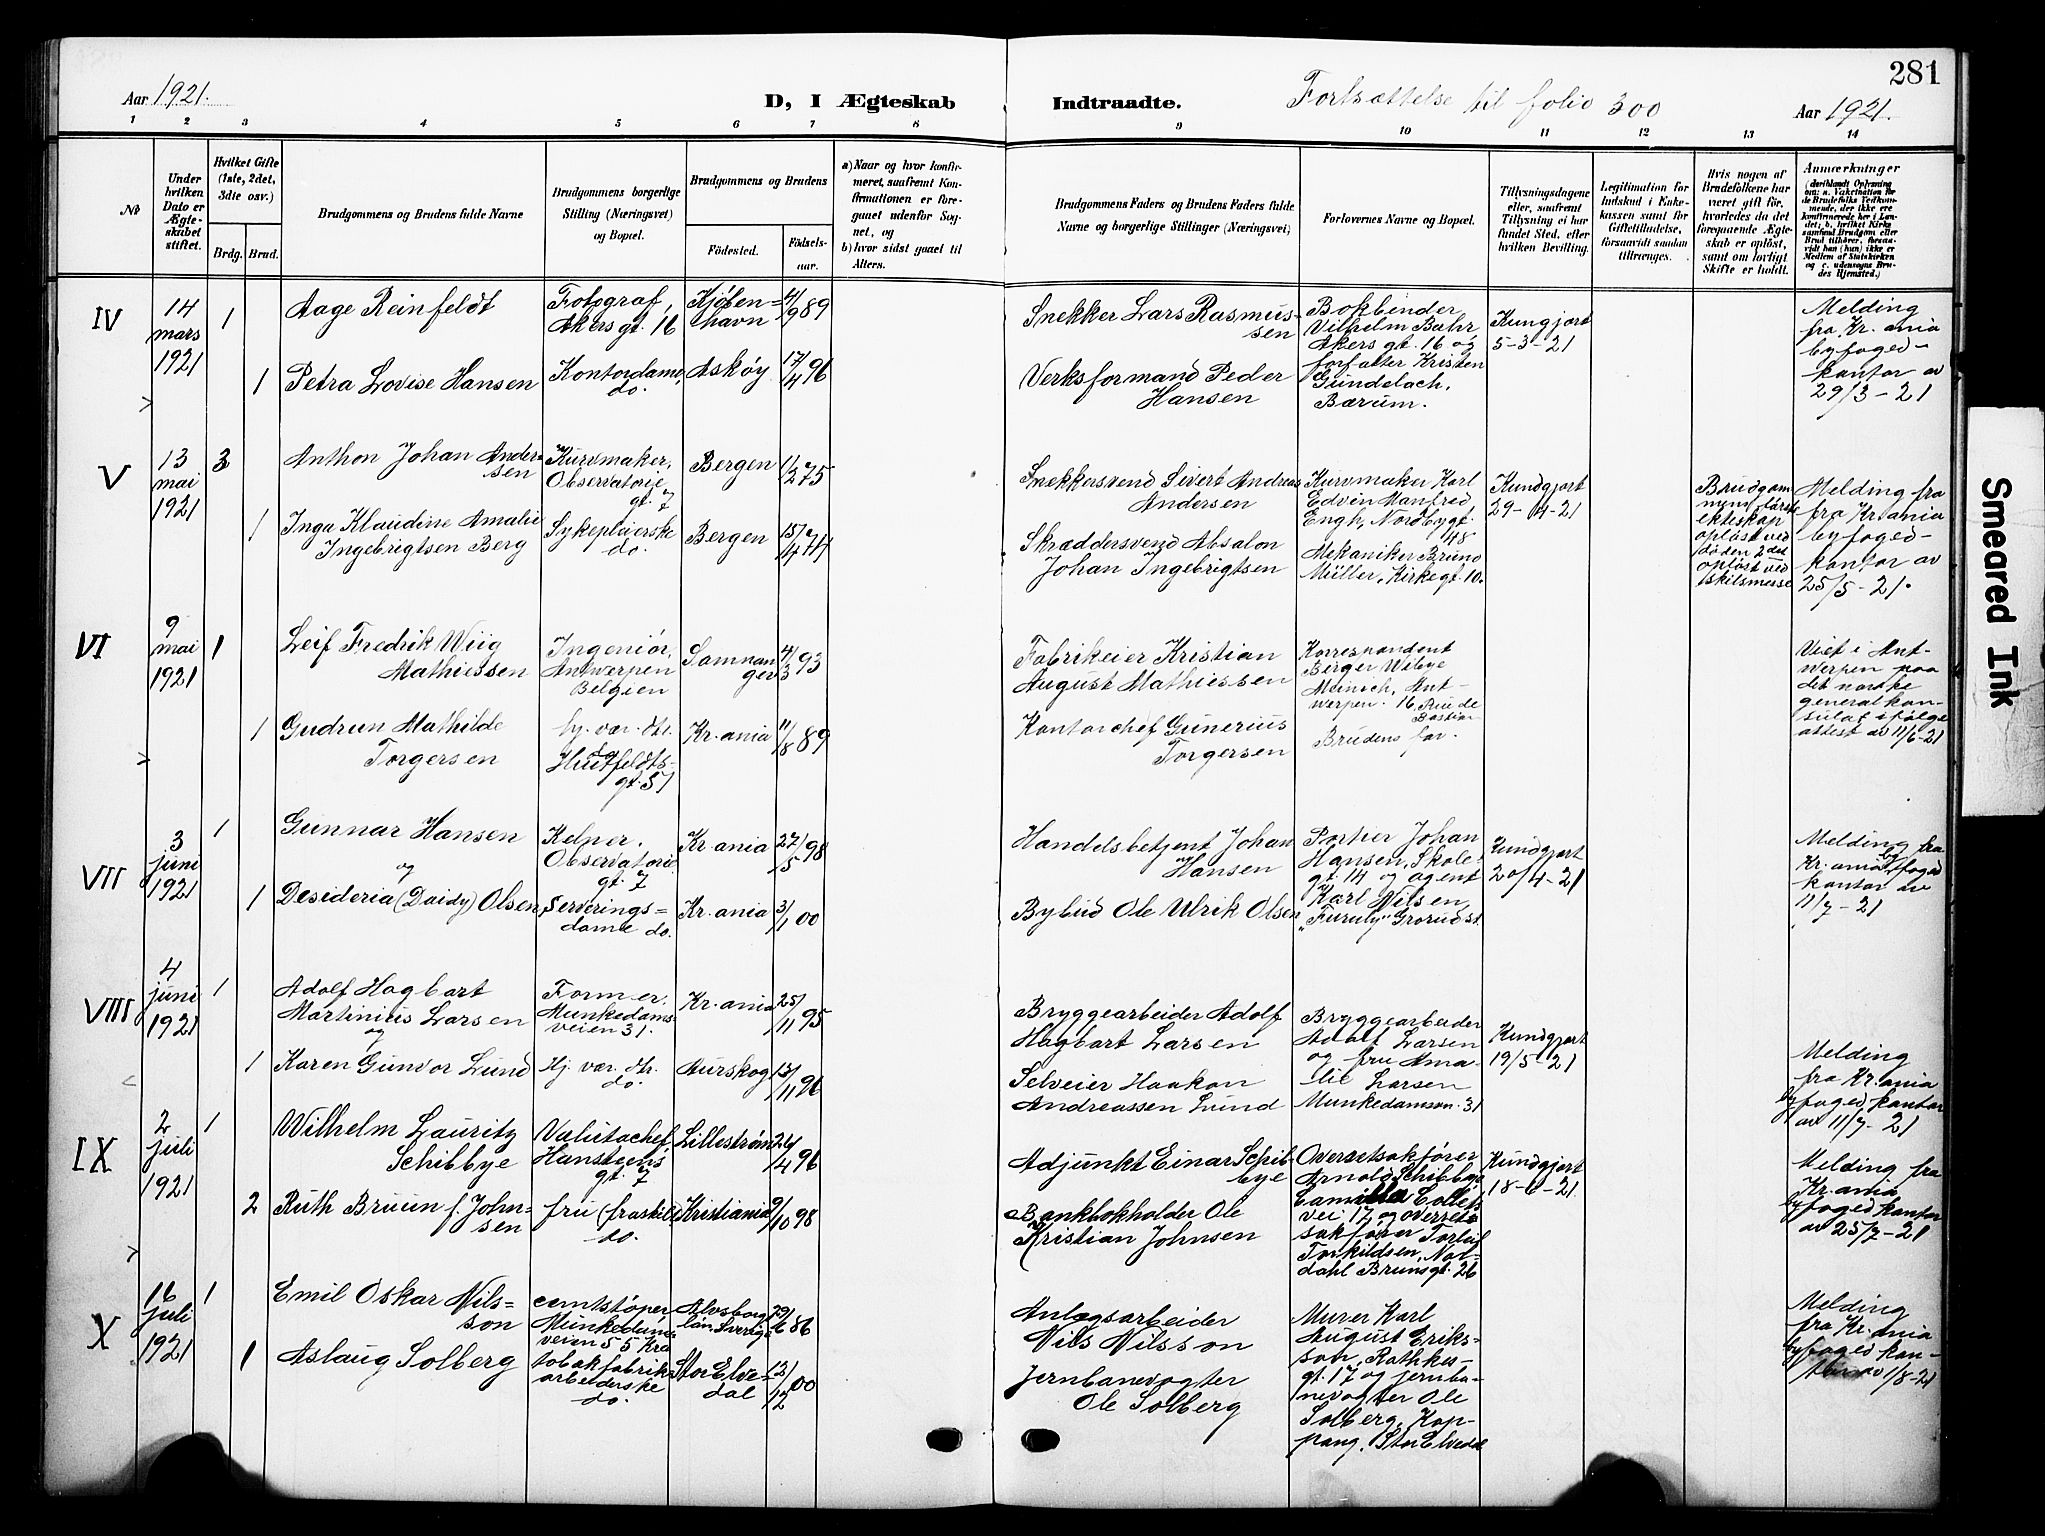 281
Aar 1921.
D, I Ægteskab
Indtraadte.
Fortsættelse til folio 300
Aar 1921.
1 2 3 4 5 6 7 8 9 10 11 12 13 14
№
Under hvilken Dato er Ægteskabet stiftet.
Hvilket Gifte (1ste, 2det, 3die osv.)
Brdg. Brud.
Brudgommens og Brudens fulde Navne
Brudgommens borgerlige Stilling (Næringsvei) og Bopæl.
Brudgommens og Brudens
Fødested.
Fødselsaar.
a) Naar og hvor konfirmeret, saafremt Konfirmationen er foregaaet udenfor Sognet, og
b) hvor sidst gaaet til Alters.
Brudgommens Faders og Brudens Faders fulde Navne og borgerlige Stillinger (Næringsvei)
Forlovernes Navne og Bopæl.
Tillysningsdagene eller, saafremt Tillysning ei har fundet Sted, efter hvilken Bevilling.
Legitimation for Indskud i Enkekassen samt for Giftetilladelse, forsaavidt saadan tiltrænges.
Hvis nogen af Brudefolkene har været gift før, hvorledes da det foregaaende Ægteskab er opløst, samt om lovligt Skifte er holdt.
Anmærkninger
IV
14 mars 1921
1
Aage Reinfeldt
Fotograf, Akersgt. 16
Kjøbenhavn
4/9 89
Snekker Lars Rasmussen
Bokbinder Vilhelm Bahr Akersgt. 16 og forfatter Kristen Gundelach, Bærum.
Kungjort 5-3-21
Melding fra Kr.ania byfogedkontor av 29/3-21
1
Petra Lovise Hansen
Kontordame, do.
Askøy
17/4 96
Verksformand Peder Hansen
V
13 mai 1921
3
Anthon Johan Andersen
Kurvmaker, Observatoriegt. 7
Bergen
1/2 75
Snekkersvend Sivert Andreas Andersen
Kurvmaker Karl Edvin Manfred Engh, Nordbygt. 48
Mekaniker Bruno Müller, Kirkegt. 10.
Kundgjort 29-4-21
Brudgommens første ekteskap opløst ved døden 2det opløst ved skilsmisse
Melding fra fra Kr.ania byfogedkontor av 25/5-21.
1
Inga Klaudine Amalie Ingebrigtsen Berg
Sykepleierske do.
Bergen
15/4 77
Skræddersvend Absalon Johan Ingebrigtsen
VI
9 mai 1921
1
Leif Fredrik Wiig Mathiessen
Ingeniør, Antwerpen Belgien
Samnanger
4/3 93
Fabrikeier Kristian August Mathiessen
Korrespondent Berger Wibye Meinich, Antwerpen. 16, Rue de Bastian
Brudens far.
Viet i Antwerpen paa det norske generalkonsulat ifølge attest av 11/6-21
1
Gudrun Mathilde Torgersen
hj. vær. dtr. do
Huitfeldtsgt. 51
Kr.ania
11/8 89
Kontorchef Gunerius Torgersen
VII
3 juni 1921
1
Gunnar Hansen
og
Kelner, Observatoriegt. 7
Kr.ania
27/5 98
Handelsbetjent Johan Hansen
Portier Johan Hansen, Skolegt. 14 og agent Karl Nilsen, "Furuly" Grorud st.
Kundgjort 20/4-21
Melding fra Kr.ania byfogedkontor av 11/7-21
1
Desideria (Daidy) Olsen,
Serveringsdame do.
Kr.ania
3/1 00
Bybud Ole Ulrik Olsen
VIII
4 juni 1921
1
Adolf Hagbart Martinius Larsen
og
Former, Munkedamsveien 31.
Kr.ania
25/11 95
Bryggearbeider Adolf Hagbart Larsen
Bryggearbeider Adolf Larsen og fru Amalie Larsen Munkedamsvn. 31
Kundgjort 19/5-21
Melding fra Kr.ania byfogedkontor av 11/7-21
1
Karen Gunvor Lund
Hj. vær. dtr. do.
Aurskog
Selveier Haakon Andreassen Lund
IX
2 juli 1921
1
Wilhelm Lauritz Schibbye
Valutachef, Hansteensgt. 7
Lillestrøm
Adjunkt Einar Schibbye
Overretsakfører Arnold Schibbye Camilla Colletts vei 17 og overretssakfører Torleif Torkildsen, Nordahl Brunsgt. 26
Kundgjort 18-6-21
Melding fra Kr.ania byfogedkontor av 25/7-21
2
Ruth Bruun f. Johnsen
fru (fraskilt) do.
Kristiania
9/10 98
Bankbokholder Ole Kristian Johnsen
X
16 juli 1921
1
Emil Oskar Nilsson
cemtstøper Munkedamsveien 55 Kra
Alvsborg län. Sverige
29/6 86
Anlægsarbeider Nils Nilsson
Murer Karl August Eriksson, Rathkesgt. 17 og jernbanevogter Ole Solberg, Koppang, Stor Elvedal
Melding fra Kr.ania byfogedkontor av 1/8-21
1
Aslaug Solberg
tobakfabrikarbeiderske do.
Stor Elvedal
Jernbanevogter Ole Solberg
Smeared Ink